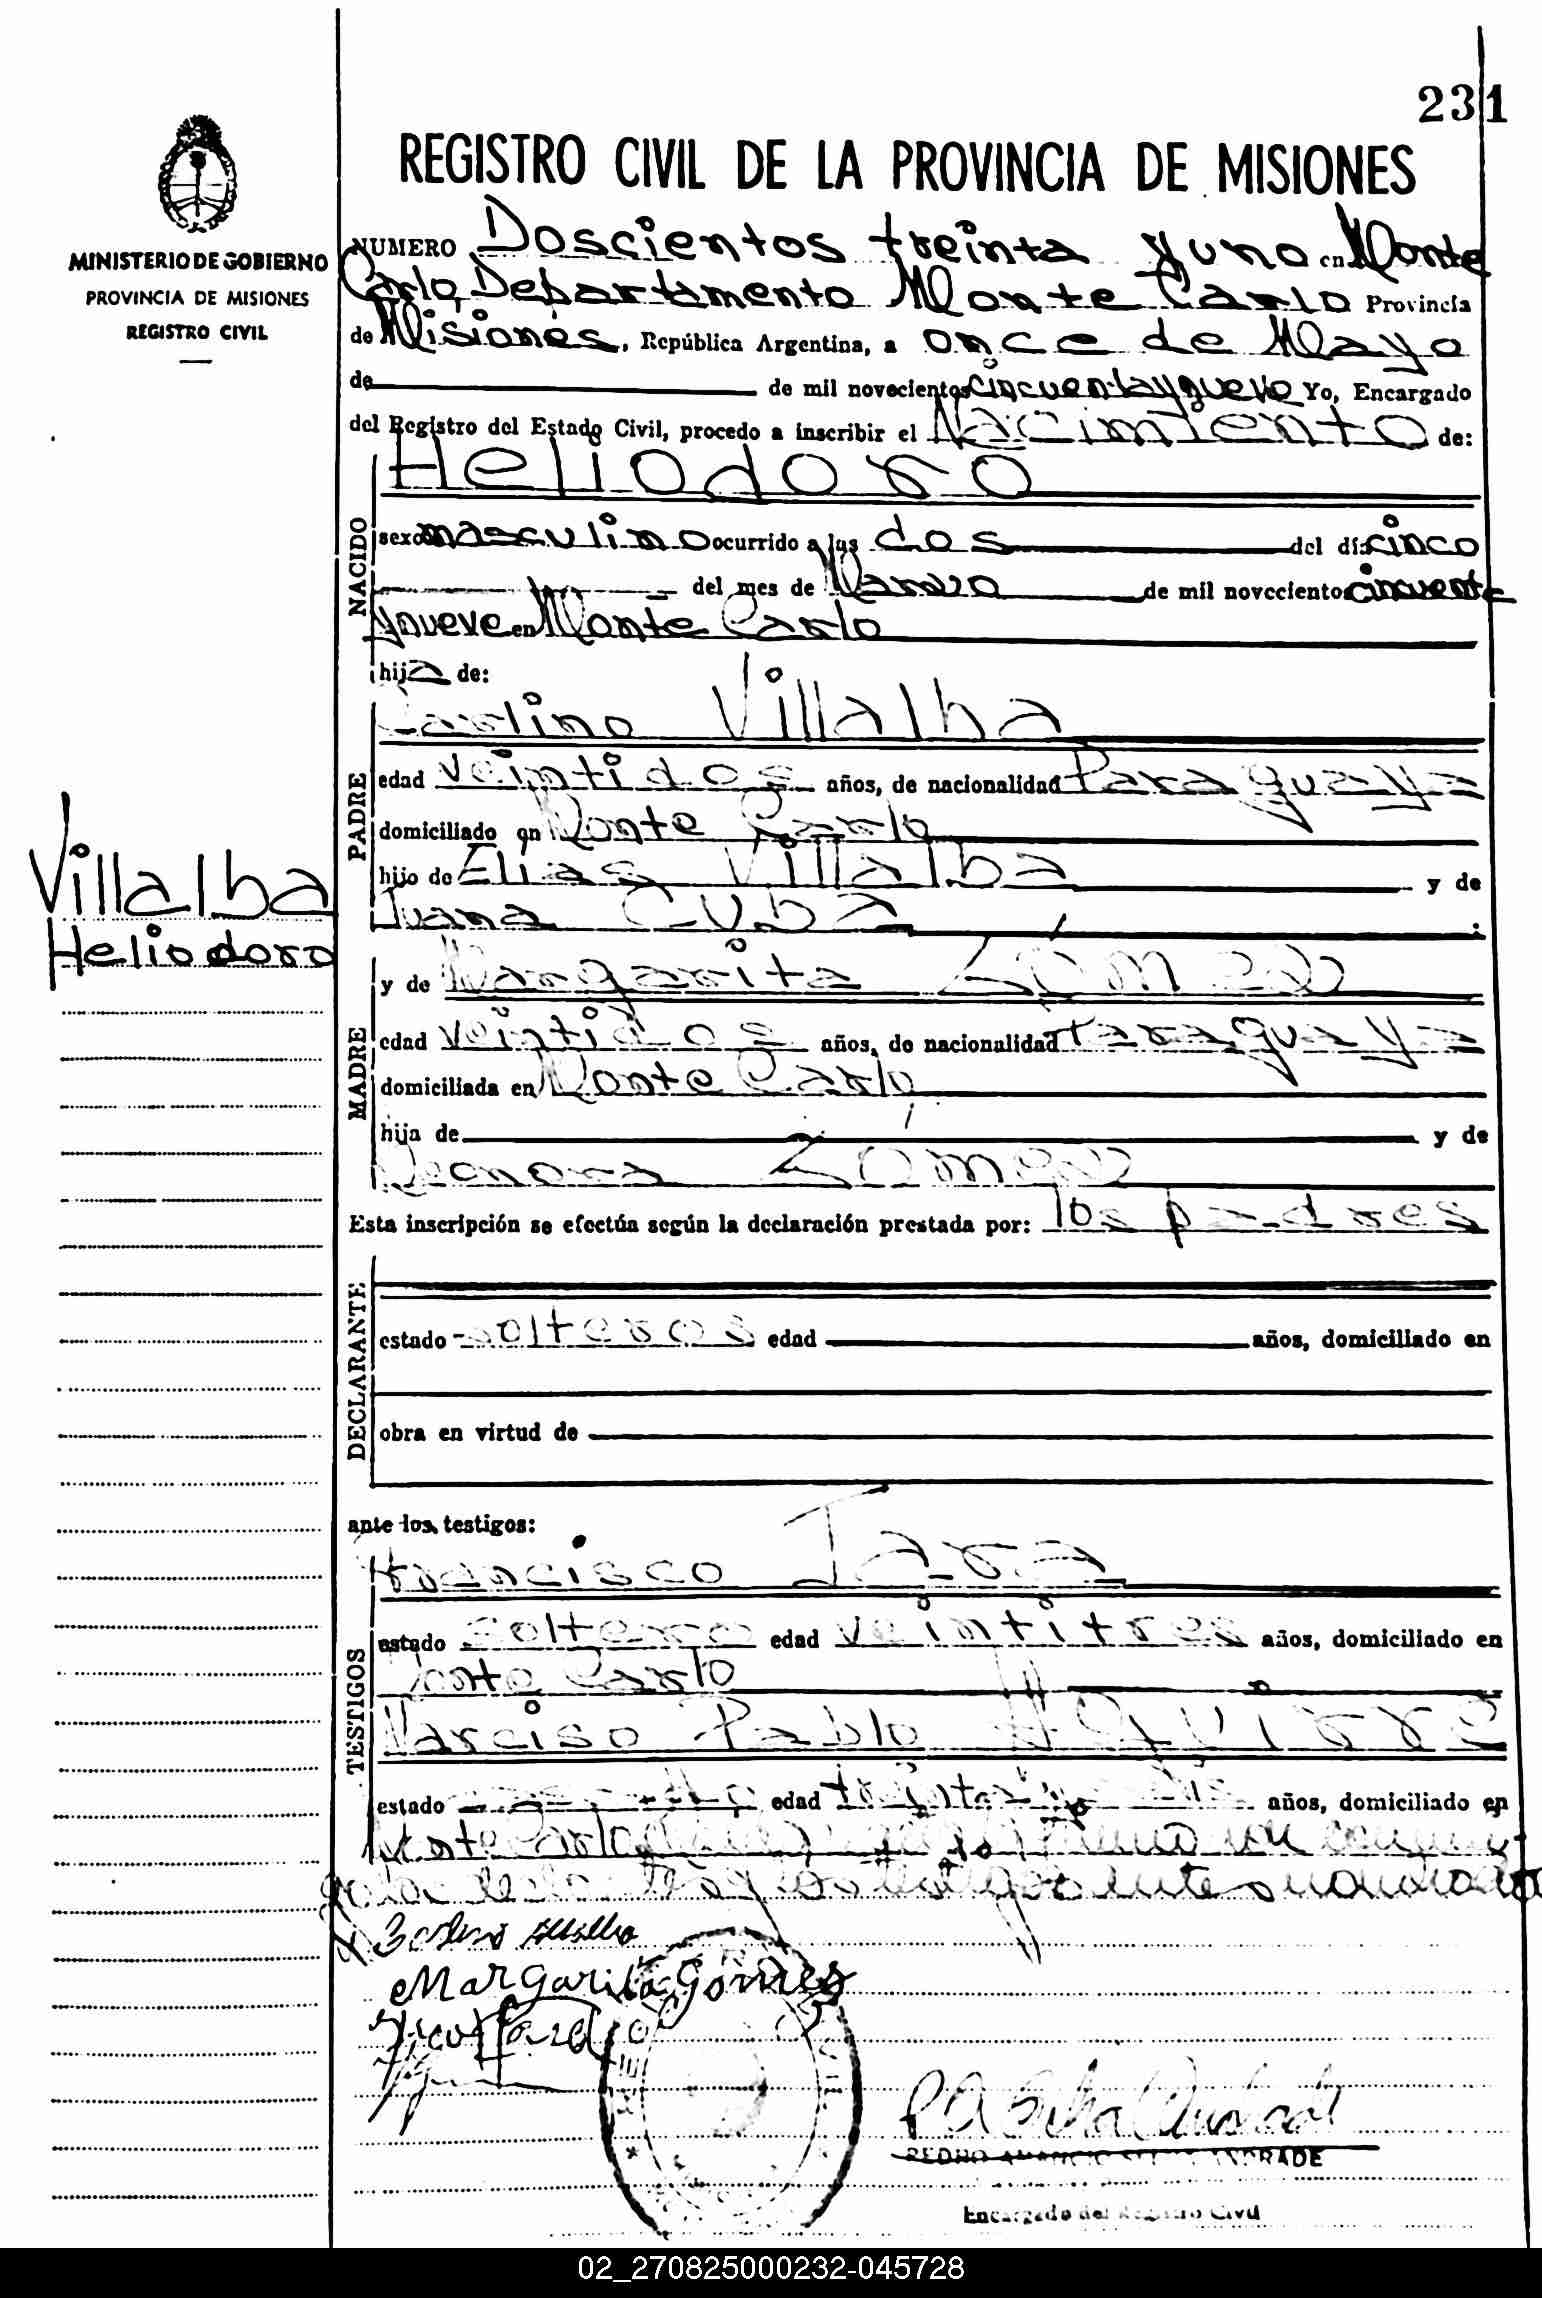 231
REGISTRO CIVIL DE LA PROVINCIA DE MISIONES
MINISTERIO DE GOBIERNO
PROVINCIA DE MISIONES
REGISTRO CIVIL
NUMERO Doscientos treinta y uno en Monte
Carlo, Departamento Monte Carlo Provincia
de Misiones, República Argentina, a once de Mayo
de de mil novecientos cincuenta y nueve Yo, Encargado
del Registro del Estado Civil, procedo a inscribir el Nacimiento de:
NACIDO
Heliodoro
sexo masculino ocurrido a las dos del día cinco
del mes de Marzo de mil novecientos cincuenta
y nueve en Monte Carlo
hijo de:
PADRE
Carlino Villalba
edad veintidos años, de nacionalidad Paraguaya
domiciliado en Monte Carlo
hijo de Elias Villalba y de
Juana Cuba
Villalba
Heliodoro
MADRE
y de Margarita Gómez
edad veintidos años, de nacionalidad Paraguaya
domiciliada en Monte Carlo
hija de y de
Leonora Gómez
Esta inscripción se efectúa según la declaración prestada por: los padres
DECLARANTE
estado solteros edad años, domiciliado en
obra en virtud de
ante los testigos:
TESTIGOS
Francisco Jara
estado soltero edad veintitres años, domiciliado en
Monte Carlo
Narciso Pablo Aguirre
estado edad treinta y años, domiciliado en
Monte Carlo
y los testigos antes nombrados
Margarita Gómes
PEDRO ANDRADE
Encargado del Registro Civil
02_270825000232-045728